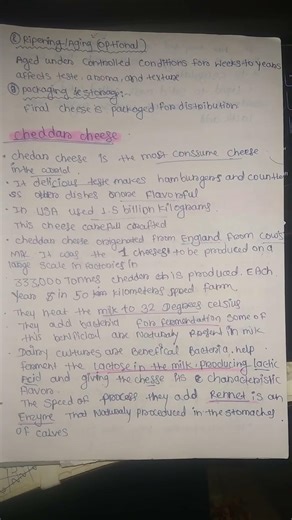 ⑦ Ripening/Aging (optional)
Aged under controlled conditions for weeks to years
affects taste, aroma, and texture
⑧ packaging & storage:-
Final cheese is packaged for distribution
cheddar cheese
• chedar cheese is the most consume cheese
in the world.
• It delicious taste makes hamburgers and countless
other dishes more flavorful
• In USA used 1.5 billion kilograms
This cheese carefull
• cheddar cheese oregenated from England from cows
milk. It was the 1 cheeses to be produced on a
large scale in factories in
333000 Tonnes cheddar produced. EAch
years 8 in 50 km kilometers farm.
• They heat the milk to 32 Degrees celsius
• They add bacteria for fermentation some of
this are naturaly in milk.
• Dairy cultures are Benefical Bacteria, help
ferment the lactose in the milk producing lactic
Acid and giving the chesse its characteristic
flavor.
• The speed of process they add Rennet is an
Enzyme That Naturaly proceduced in the stomaches
of calves